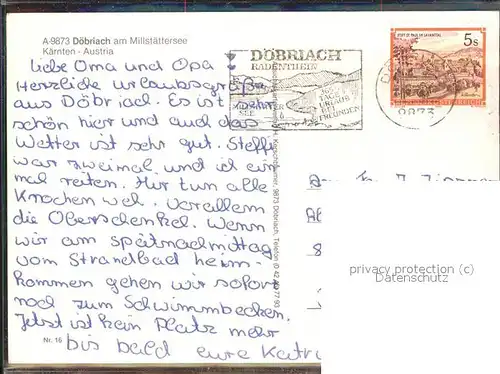 A-9873 Döbriach am Millstättersee
Kärnten - Austria
Liebe Oma und Opa
Herzliche Urlaubsgrüße
aus Döbriach. Es ist
schön hier und auch das
Wetter ist sehr gut. Steffi
war zweimal und ich ein
mal reiten. Mir tun alle
Knochen weh. Vorallem
die Oberschenkel. Wenn
wir am spätnachmittag
vom Strandbad heim-
kommen gehen wir sofort
noch zum Schwimmbecken.
Jetzt ist kein Platz mehr
bis bald eure Katrin
Nr. 16
DÖBRIACH
RADENTHEIN
SEE
URLAUB
BEI
FREUNDEN
9873
STIFT ST. PAUL IM LAVANTTAL
5s
9873 Döbriach, Telefon
privacy protection (c)
Datenschutz